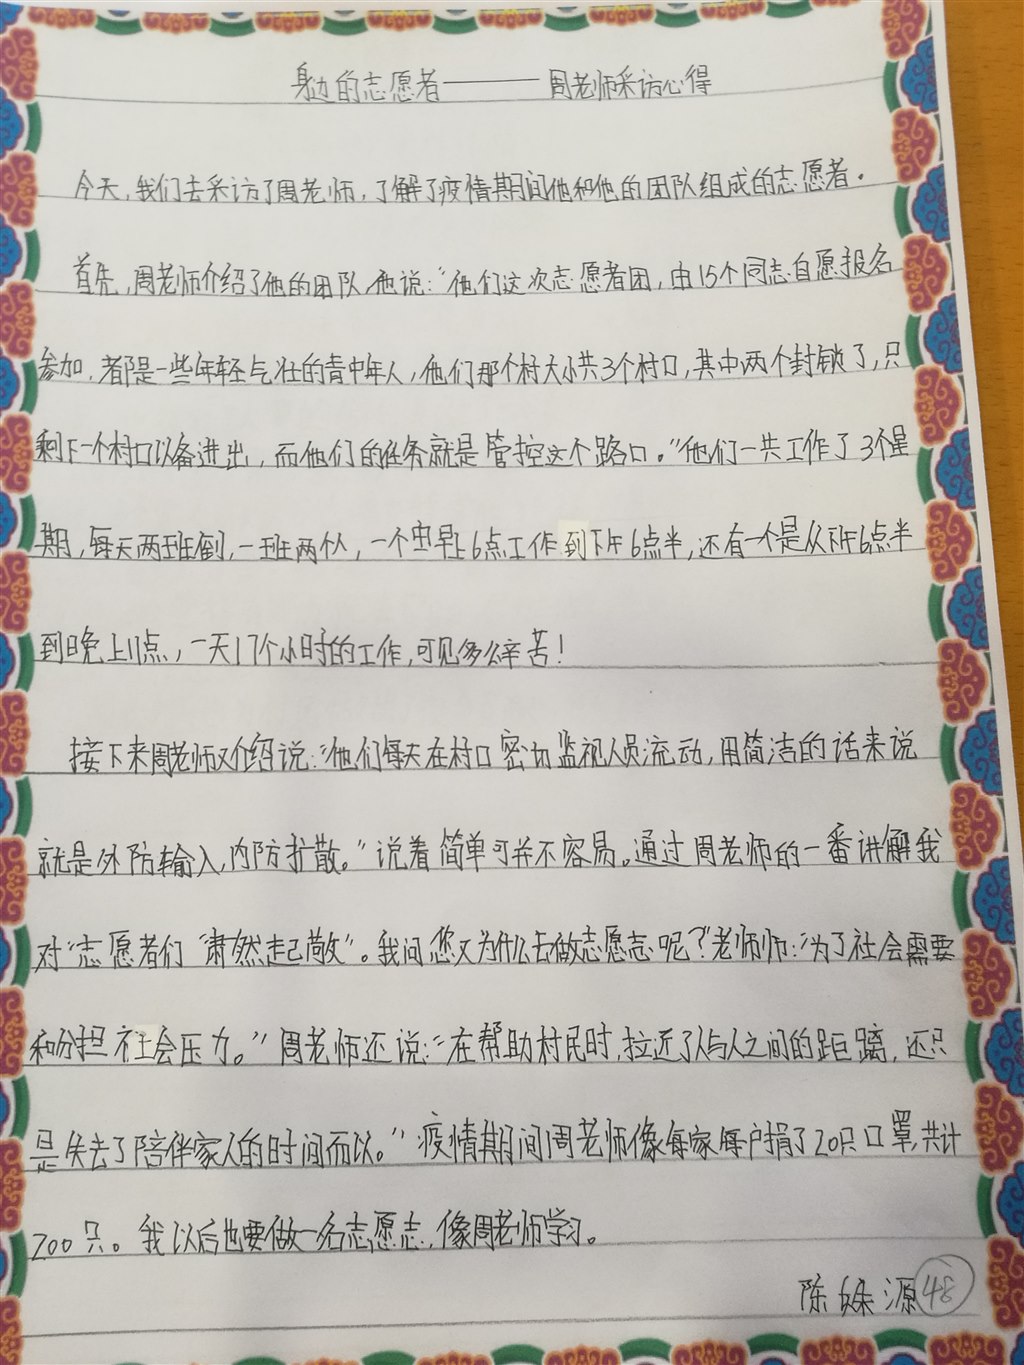 身边的志愿者——周老师采访心得
今天,我们去采访了周老师,了解了疫情期间他和他的团队组成的志愿者。
首先,周老师介绍了他的团队,他说:“他们这次志愿者团,由15个同志自愿报名
参加,都是一些年轻气壮的青中年人,他们那个村大小共3个村口,其中两个封锁了,只
剩下一个村口以备进出,而他们的任务就是管控这个路口。”他们一共工作了3个星
期,每天两班倒,一班两个人,一个由早上6点工作到下午6点半,还有一个是从下午6点半
到晚上11点,一天17个小时的工作,可见多么辛苦!
接下来周老师又介绍说:“他们每天在村口密切监视人员流动,用简洁的话来说
就是外防输入,内防扩散。”说着简单可并不容易。通过周老师的一番讲解我
对“志愿者们“肃然起敬”。我问您又为什么去做志愿志呢?”老师师:“为了社会需要
和分担社会压力。”周老师还说:“在帮助村民时,拉近了人与人之间的距离,还只
是失去了陪伴家人的时间而以。”疫情期间周老师像每家每户捐了20只口罩,共计
200只。我以后也要做一名志愿志,像周老师学习。
陈 源 48